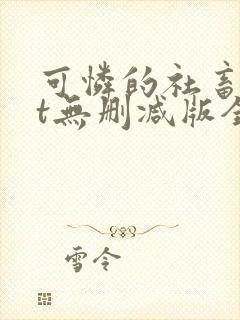 可憐的社畜
t無刪減版全
雪令